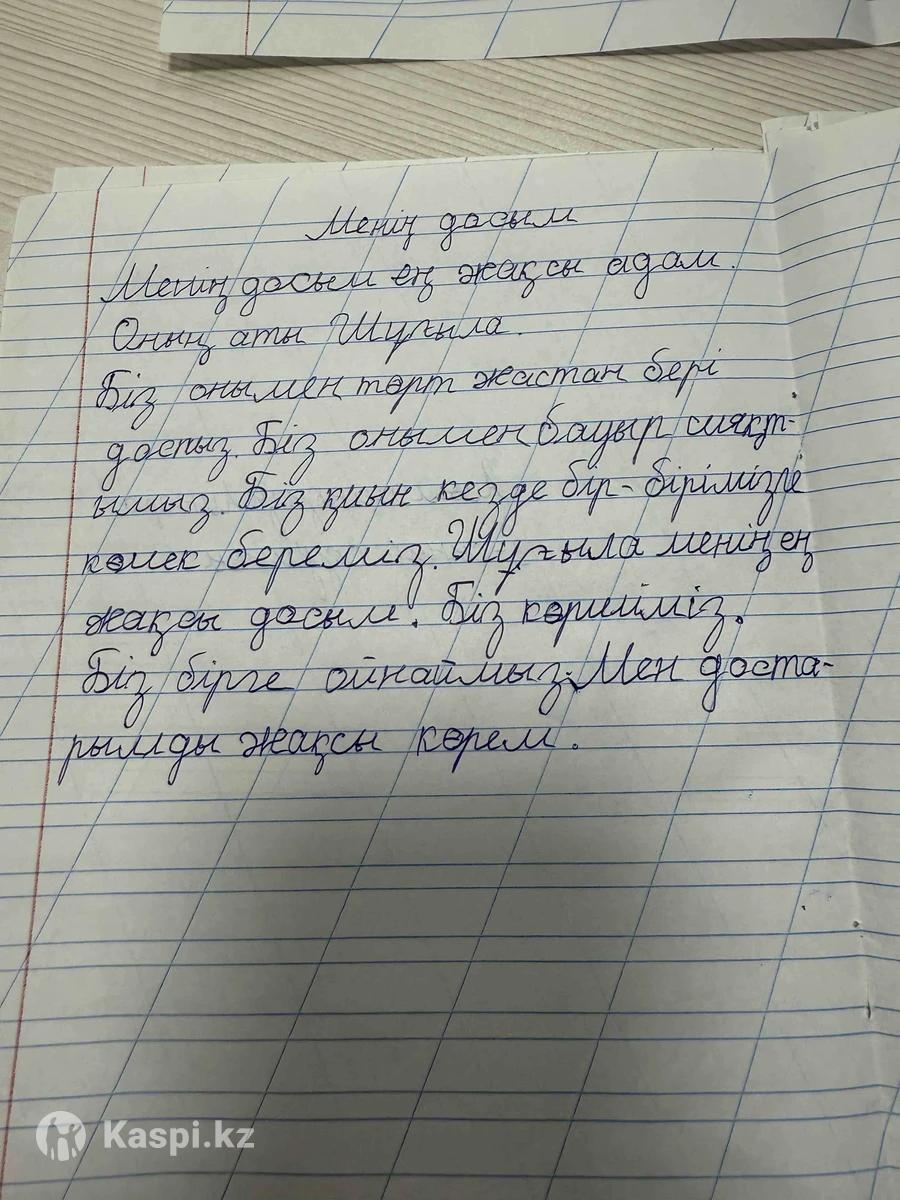 Менің досым
Менің досым ең жақсы адам.
Оның аты Шұғыла.
Біз онымен төрт жастан бері
доспыз. Біз онымен бауыр сияқт-
ымыз. Біз қиын кезде бір-бірімізге
көмек береміз. Шұғыла менің ең
жақсы досым. Біз көршіміз.
Біз бірге ойнаймыз. Мен доста-
рымды жақсы көрем.
Kaspi.kz